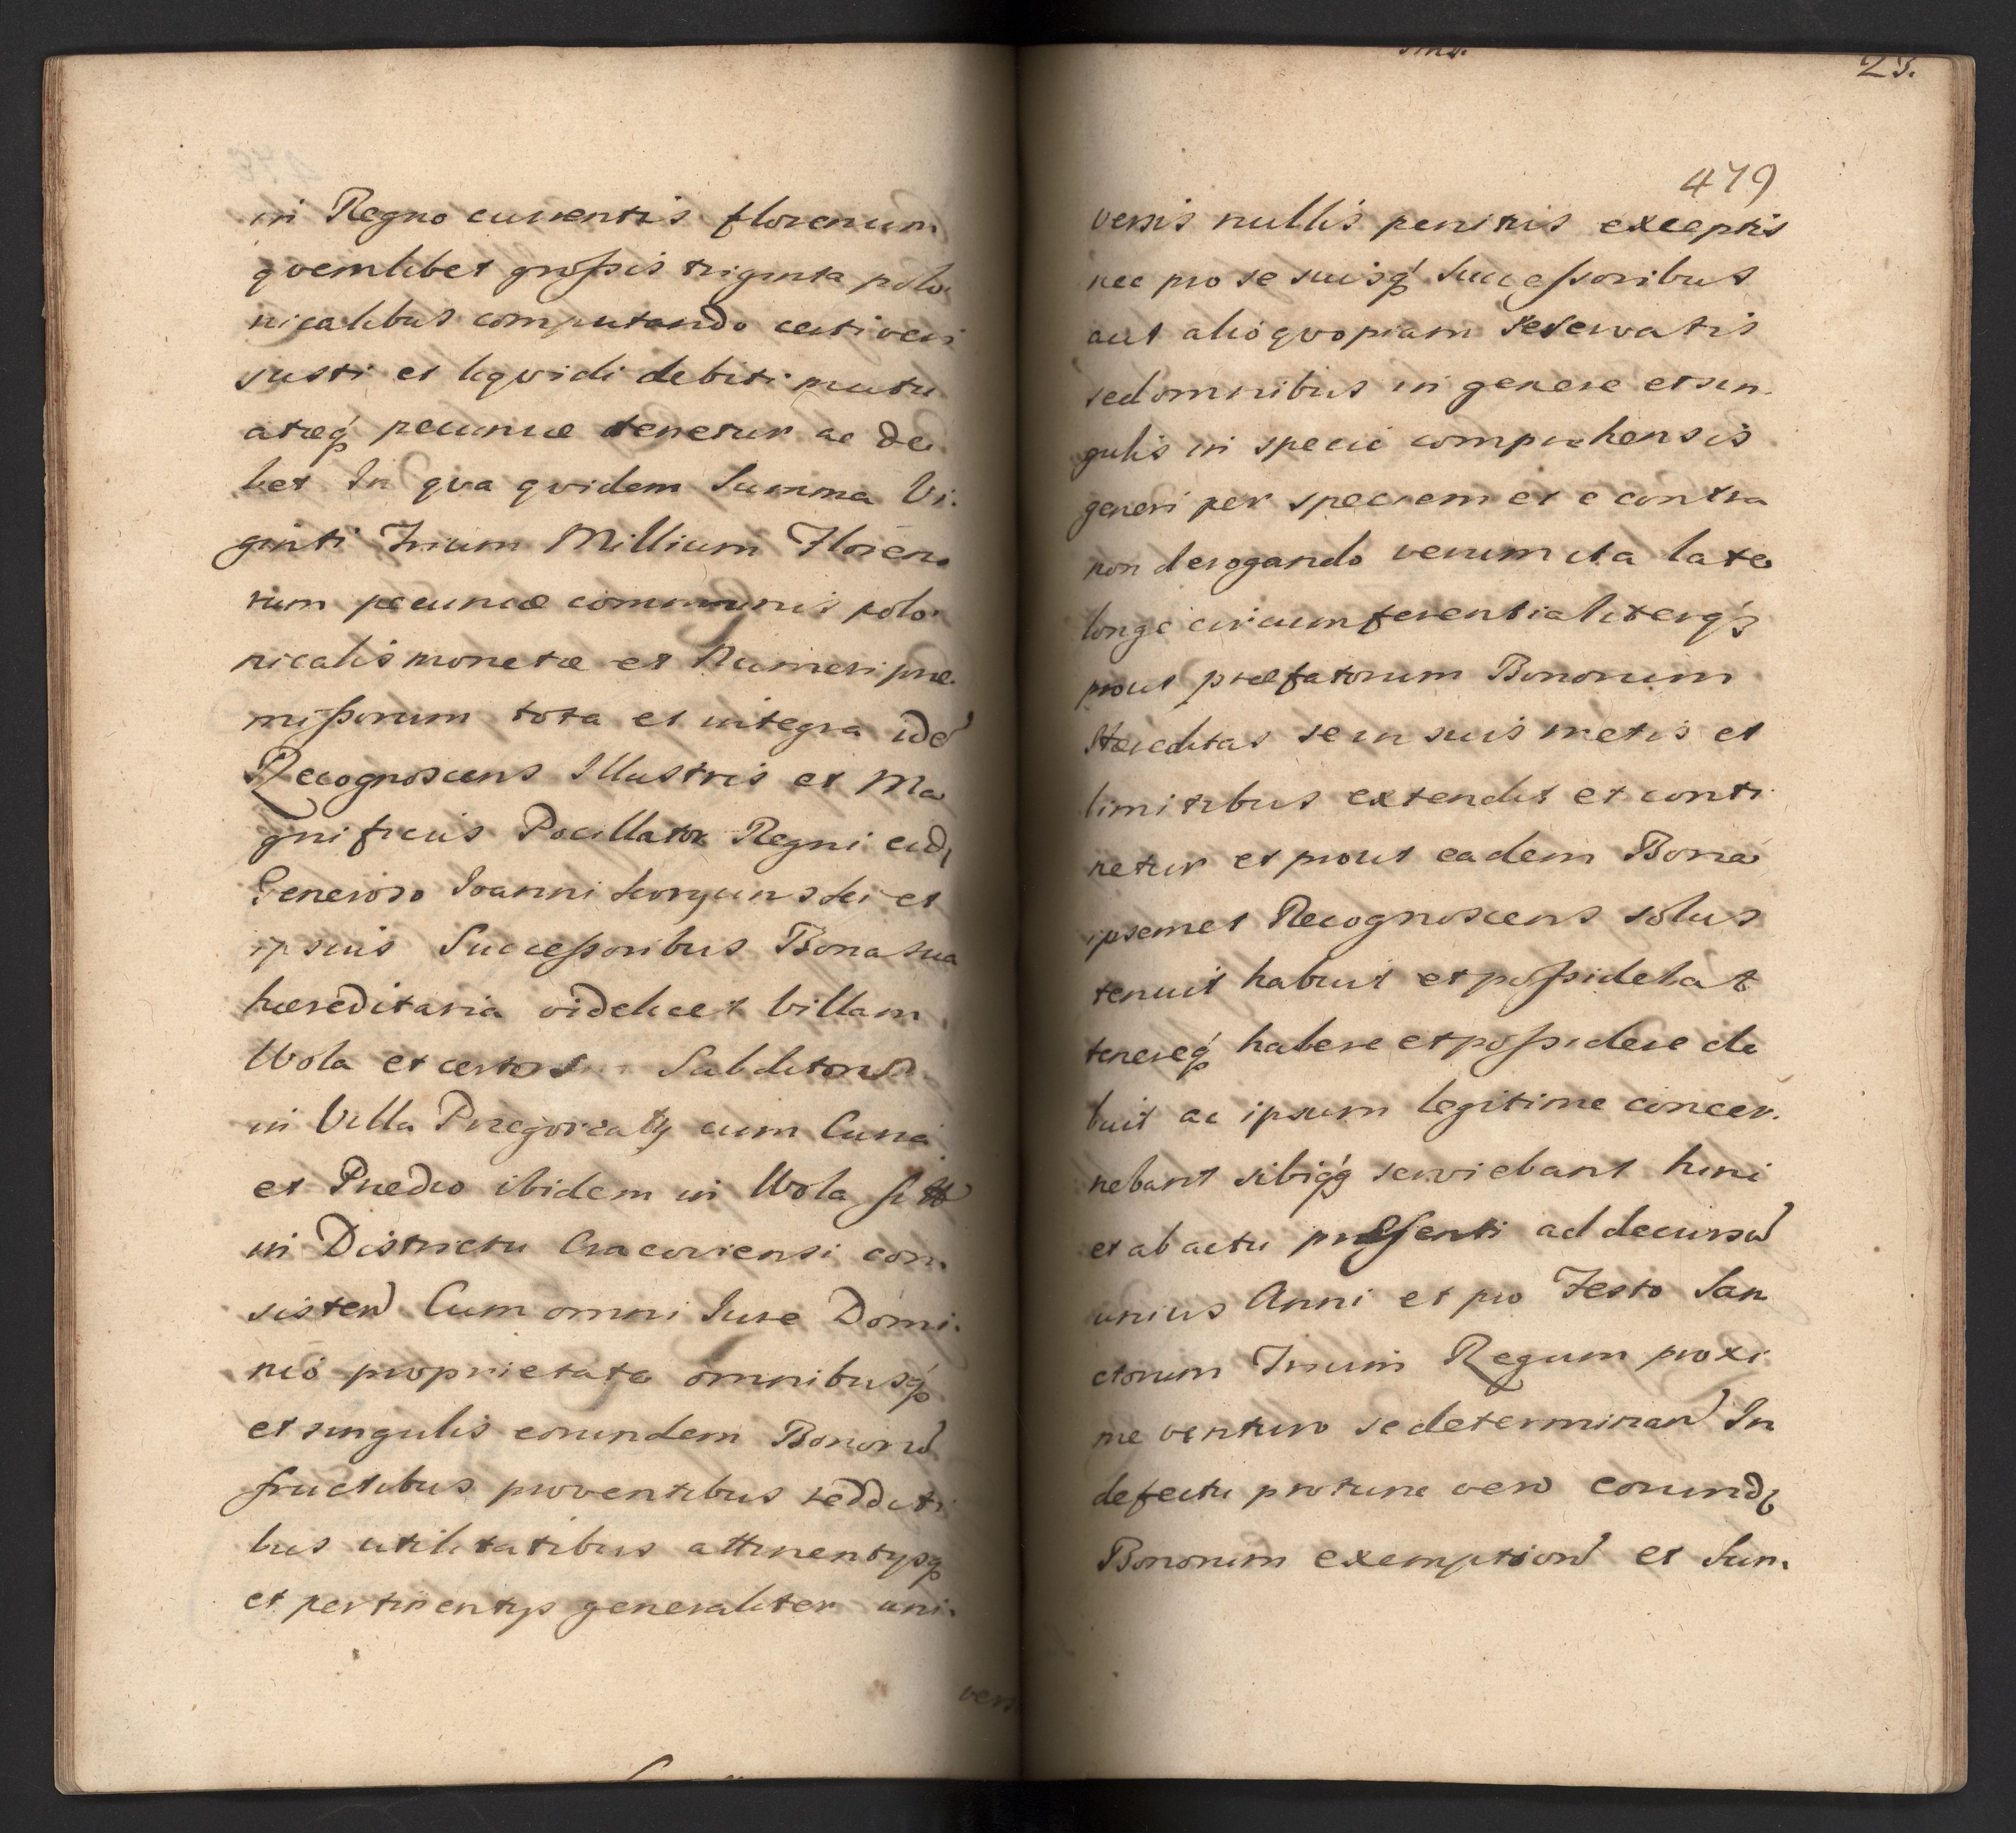 in Regno currentis florenum
qvemlibet grossis triginta polo-
nicalibus computando certi veri
justi et liqvidi debiti mutu
atæq pecuniæ tenetur ac de-
bet In qva qvidem Summa Vi-
ginti Trium Millium Floren-
rum pecuniæ communis polo-
nicalis monetæ et Numeri præ-
missorum tota et integra idē
Recognoscens Illustris et Ma
gnificus Pocillator Regni eid,
Generoso Ioanni et
ipsius Successoribus Bona sua
hæreditaria videlicet Villam
Wola et certos Subditos
in Villa cum Curia
et Prædio ibidem in Wola
in Districtu Cracoviensi con-
sisten Cum omni Iure Domi-
nió proprietate omnibusq
et singulis eorundem Bonorū
fructibus proventibus redditi
bus utilitatibus attinentysq
et pertinentys generaliter uni-
vers
479
23.
versis nullis penitus exceptis
nec pro se suisq Successoribus
aut alió qvopiam reservatis
sed omnibus in genere et sin-
gulis in specie comprehensis
generi per speciem et e contra
non derogando verum ita late
longe circumferentialiterq
prout præfatorum Bonorum
Hæreditas se in suis metis et
limitibus extendit et conti
netur et prout eadem Bona
ipsemet Recognoscens solus
tenuit habuit et possidebat
tenereq habere et possidere de
buit ac ipsum legitime concer-
nebant sibiq serviebant huni
et ab actu præsenti ad decursū
unius Anni et pro Festo San
ctorum Trium Regum proxi
me venturo se determinan In
defectu protunc vero eorund,
Bonorum exemption et Sum-